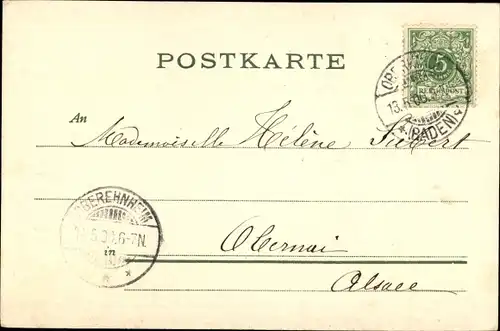 POSTKARTE
5
REICHSPOST
(BADEN)
An
Mademoiselle Hélène Siebert
OBEREHNHEIM
6-7N.
in
Obernai
Alsace